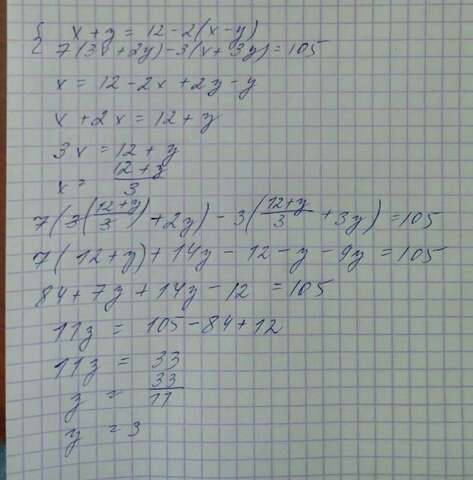 { x + y = 12 - 2(x - y)
7(3x + 2y) - 3(x + 3y) = 105
x = 12 - 2x + 2y - y
x + 2x = 12 + y
3x = 12 + y
x = (12 + y)/3
7(3((12 + y)/3) + 2y) - 3((12 + y)/3 + 3y) = 105
7(12 + y) + 14y - 12 - y - 9y = 105
84 + 7y + 14y - 12 = 105
11y = 105 - 84 + 12
11y = 33
y = 33/11
y = 3